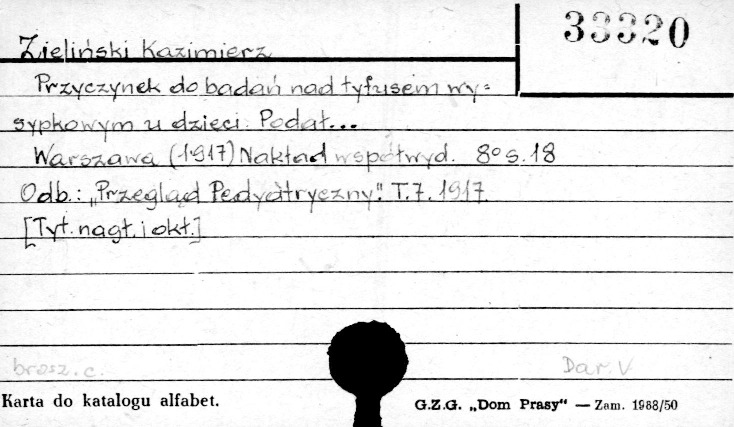 33320
Zieliński Kazimierz
Przyczynek do badań nad tyfusem wy=
sypkowym u dzieci. Podał...
Warszawa (1917) Nakład współwyd. 8º s. 18
Odb.: „Przegląd Pedyatryczny". T.7. 1917.
[Tyt. nagł. i okł.]
brosz. c. Dar. V
Karta do katalogu alfabet. G.Z.G. „Dom Prasy“ — Zam. 1988/50